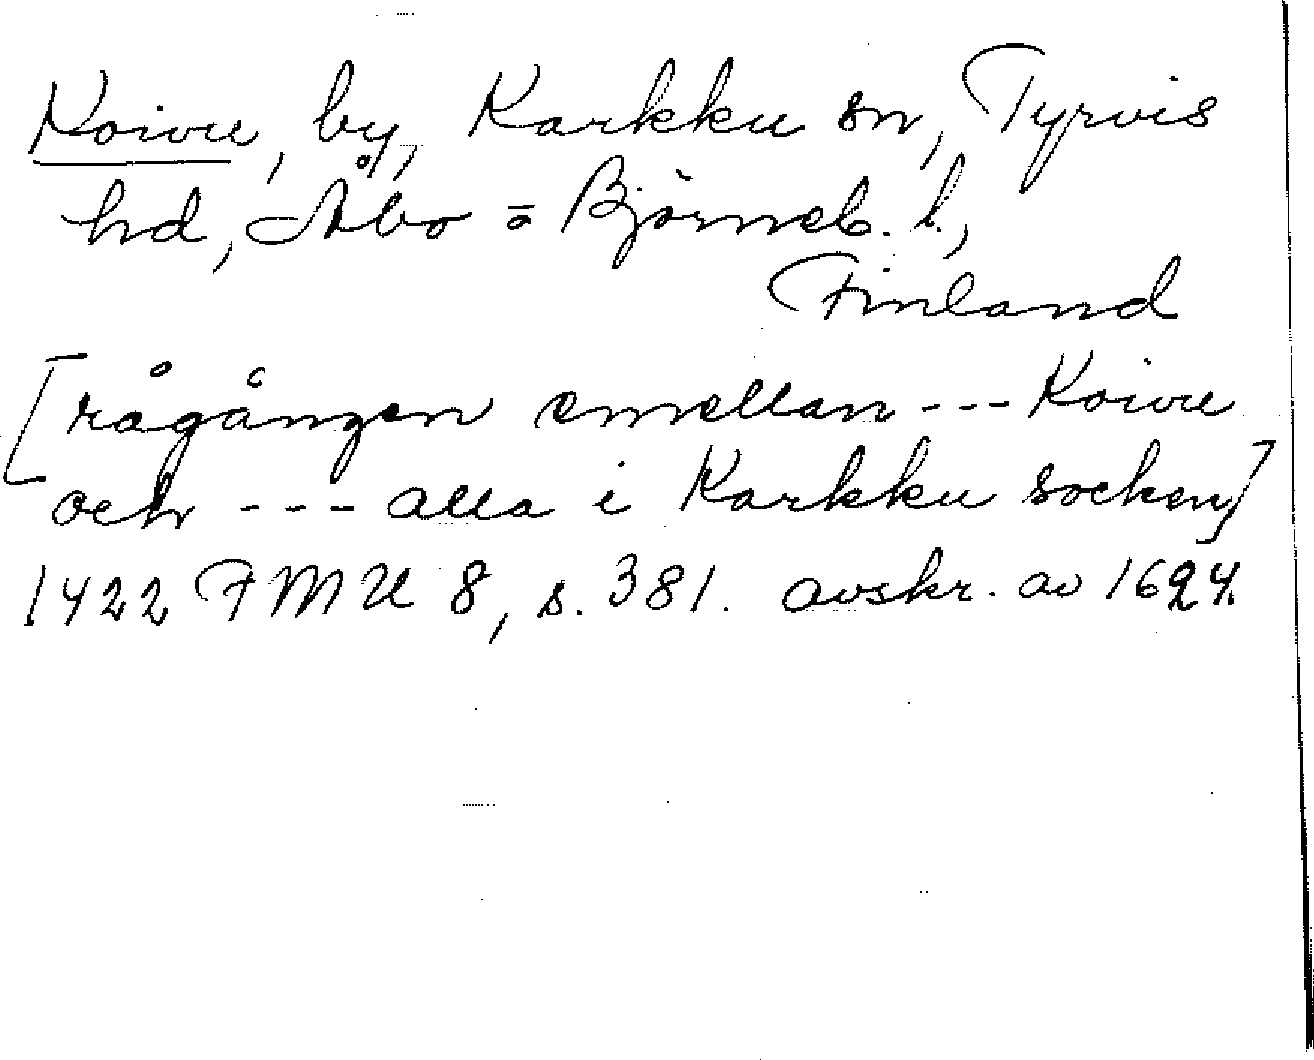 Koivu, by, Karkku sn, Tyrvis
hd, Åbo = Björneb. l.,
Finland
[rågången emellan --- Koivu
och --- alla i Karkku socken]
1422 FMU 8, s. 381. avskr. av 1624.